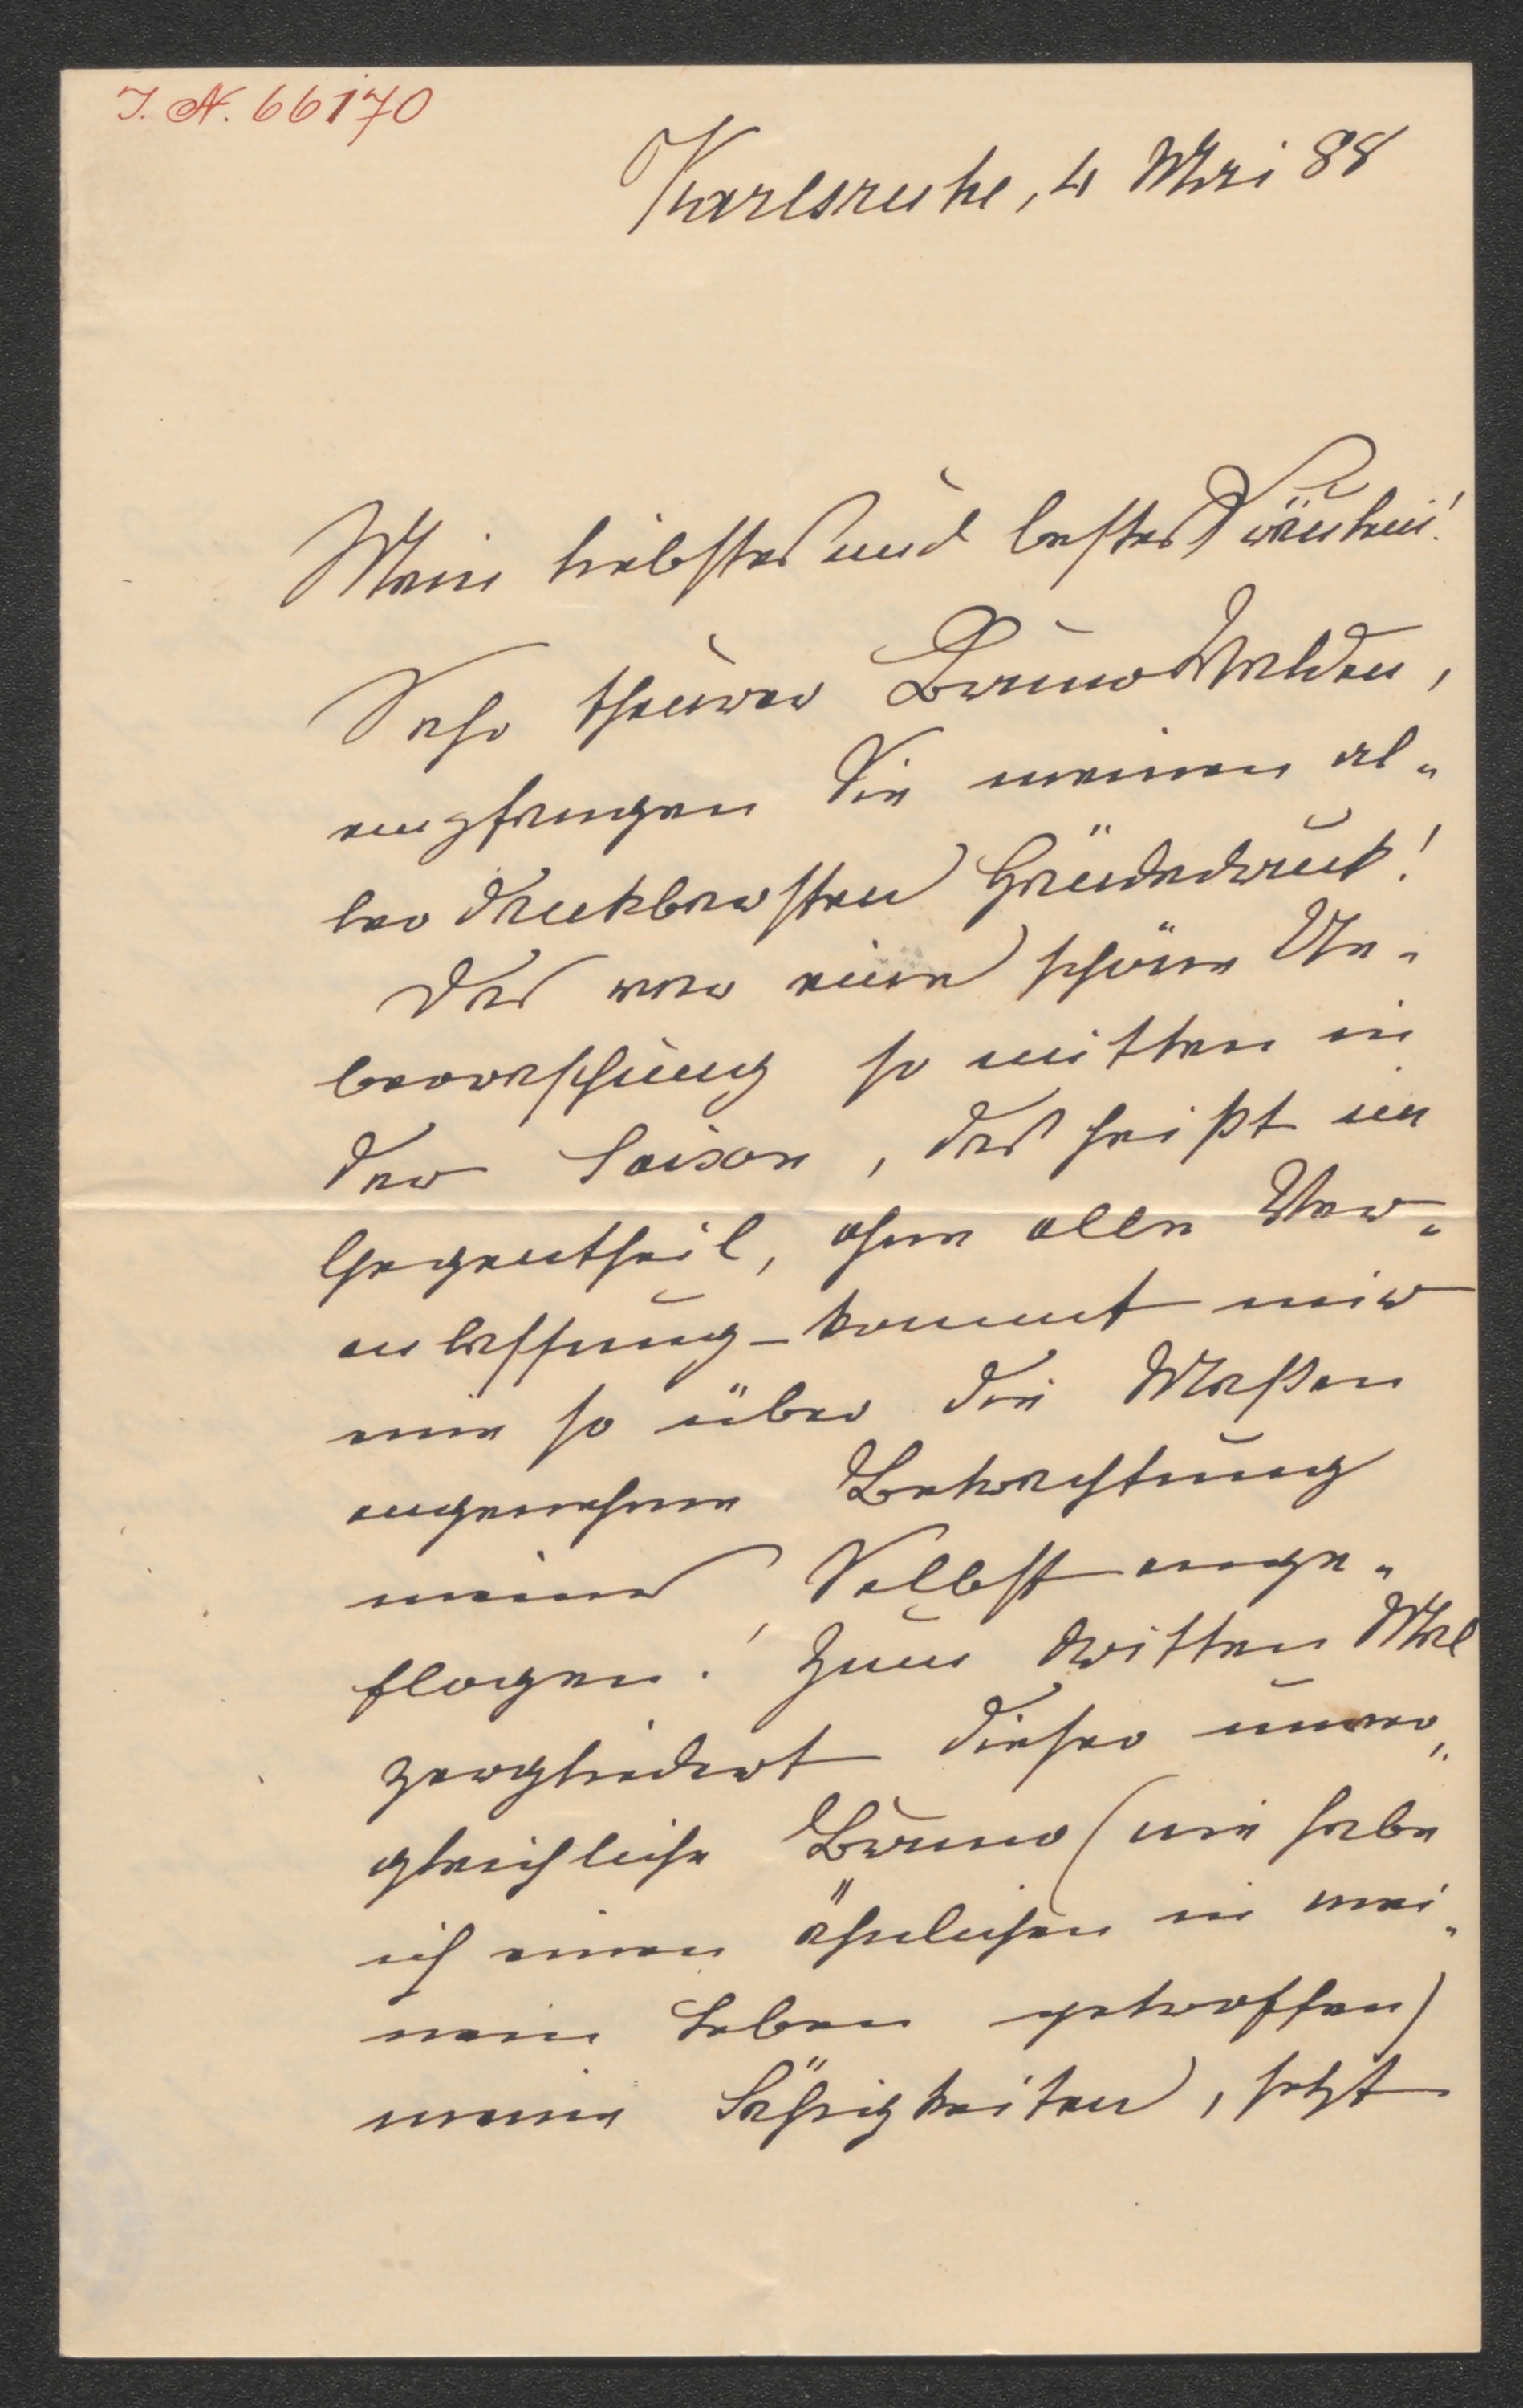 I. N. 66170
Karlsruhe, 4 Mai 88
Mein liebstes und bestes Fräulein!
Sehr theurer Bruno Walden,
empfangen Sie meinen al-
ler dankbarsten Händedruck!
Das war eine schöne Ue-
berraschung so mitten in
der Saison, das heißt im
Gegentheil, ohne alle Ver-
anlassung – kommt mir
eine so über die Maßen
angenehme Betrachtung
meines Selbst ange-
flogen! Zum dritten Mal
zergliedert dieser unver-
gleichliche Bruno (nie habe
ich einen ähnlichen in mei-
nem Leben getroffen)
meine Fähigkeiten, setzt